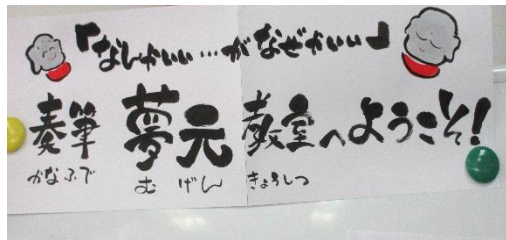 『なんかいい…がなぜかいい』
奏筆 夢元 教室へようこそ!
かなふで むげん きょうしつ